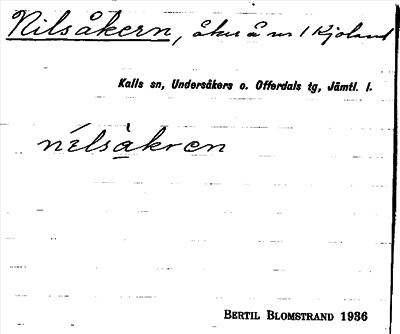 Nilsåkern, åker å nr 1 Kjoland
Kalls sn, Undersåkers o. Offerdals tg, Jämtl. l.
nílsàkren
BERTIL BLOMSTRAND 1936